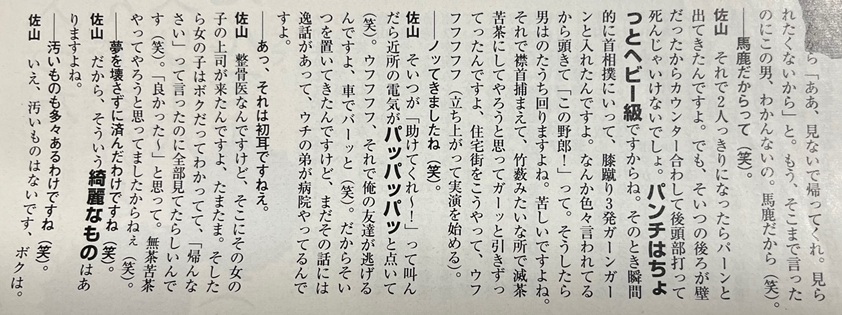 から「ああ、見ないで帰ってくれ。見ら
れたくないから」と。もう、そこまで言った
のにこの男、わかんないの。馬鹿だから（笑）。
――馬鹿だからって（笑）。
佐山　それで2人っきりになったらパーンと
出てきたんですよ。でも、そいつの後ろが壁
だったからカウンター合わして後頭部打って
死んじゃいけないでしょ。パンチはちょ
っとヘビー級ですからね。そのとき瞬間
的に首相撲にいって、膝蹴り3発ガーンガー
ンと入れたんですよ。なんか色々言われてる
から頭きて「この野郎！」って。そうしたら
男はのたうち回りますよね。苦しいですよね。
それで襟首捕まえて、竹藪みたいな所で滅茶
苦茶にしてやろうと思ってガーッと引きずっ
てったんですよ、住宅街をこうやって、ウフ
フフフフフ（立ち上がって実演を始める）。
――ノッてきましたね（笑）。
佐山　そいつが「助けてくれ～！」って叫ん
だら近所の電気がパッパッパッと点いて
（笑）。ウフフフフ、それで俺の友達が逃げる
んですよ、車でバーッと（笑）。だからそい
つを置いてきたんですけど、まだその話には
逸話があって、ウチの弟が病院やってるんで
すよ。
――あっ、それは初耳ですねえ。
佐山　整骨医なんですけど、そこにその女の
子の上司が来たんですよ、たまたま。そした
ら女の子はボクだってわかってて、「帰んな
さい」って言ったのに全部見てたらしいんで
す（笑）。「良かった～」と思って。無茶苦茶
やってやろうと思ってましたからねぇ（笑）。
――夢を壊さずに済んだわけですね（笑）。
佐山　だから、そういう綺麗なものはあ
りますよね。
――汚いものも多々あるわけですね（笑）。
佐山　いえ、汚いものはないです、ボクは。